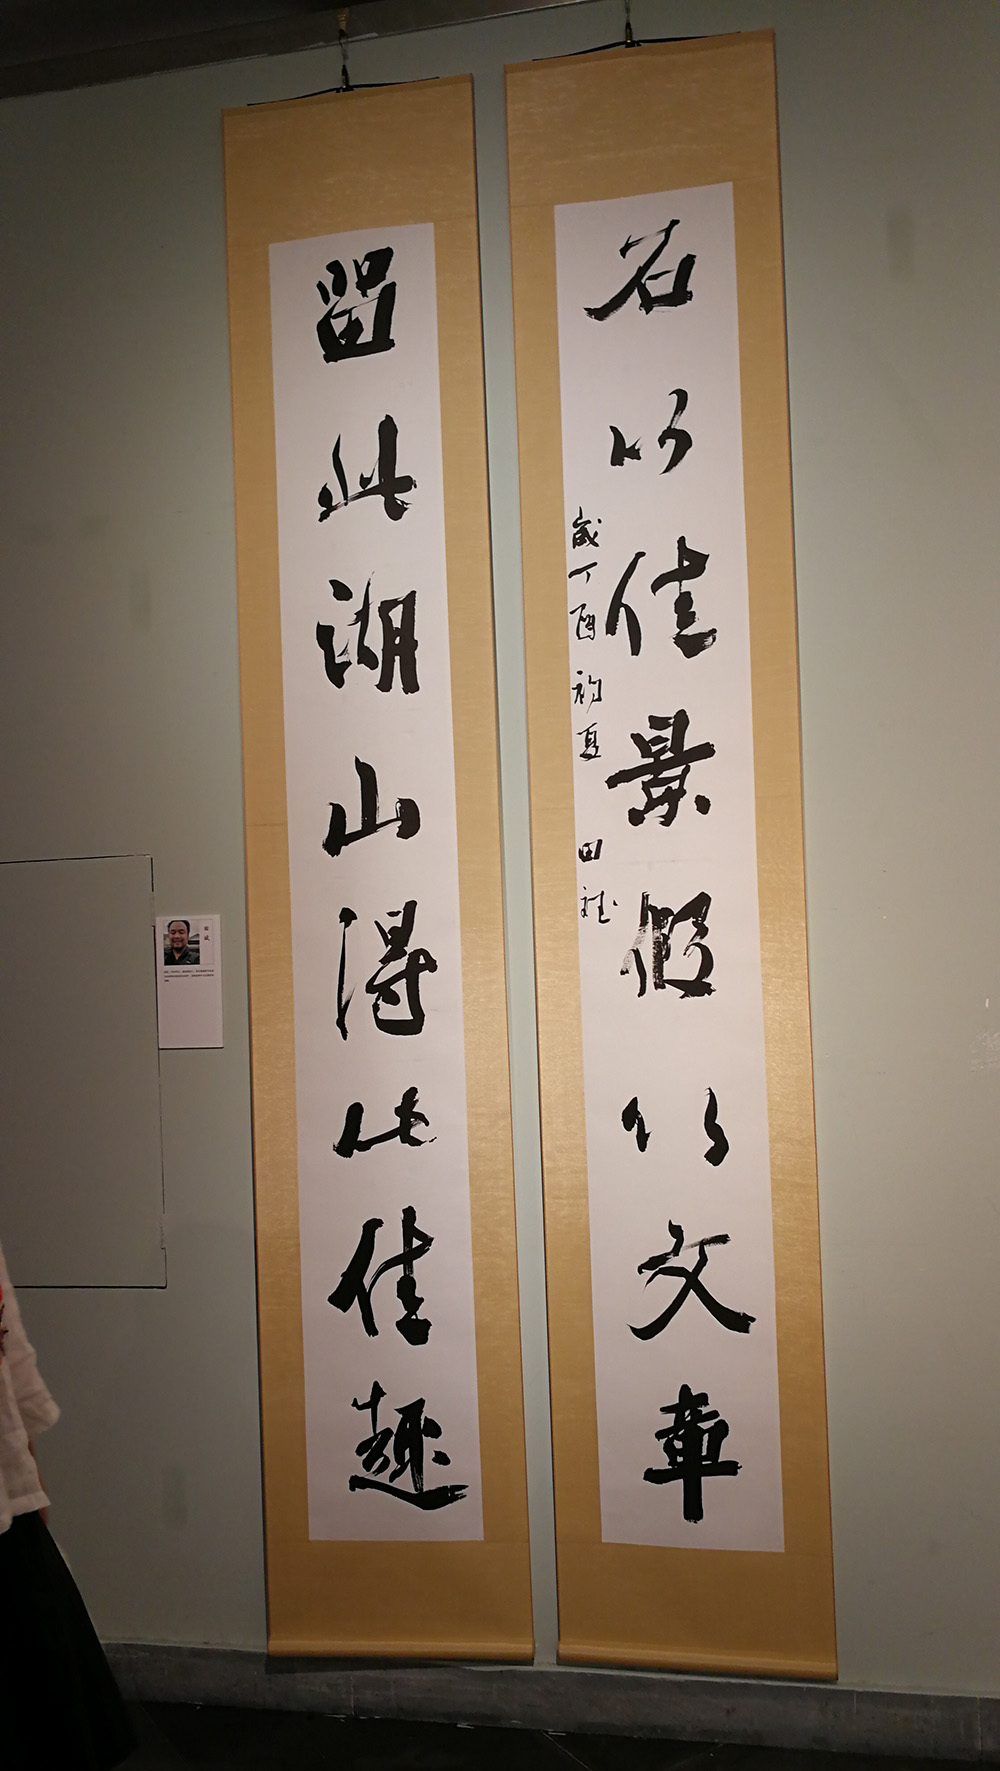 召以佳景假以文章
歲丁酉初夏 田斌
留此湖山得此佳趣
田斌